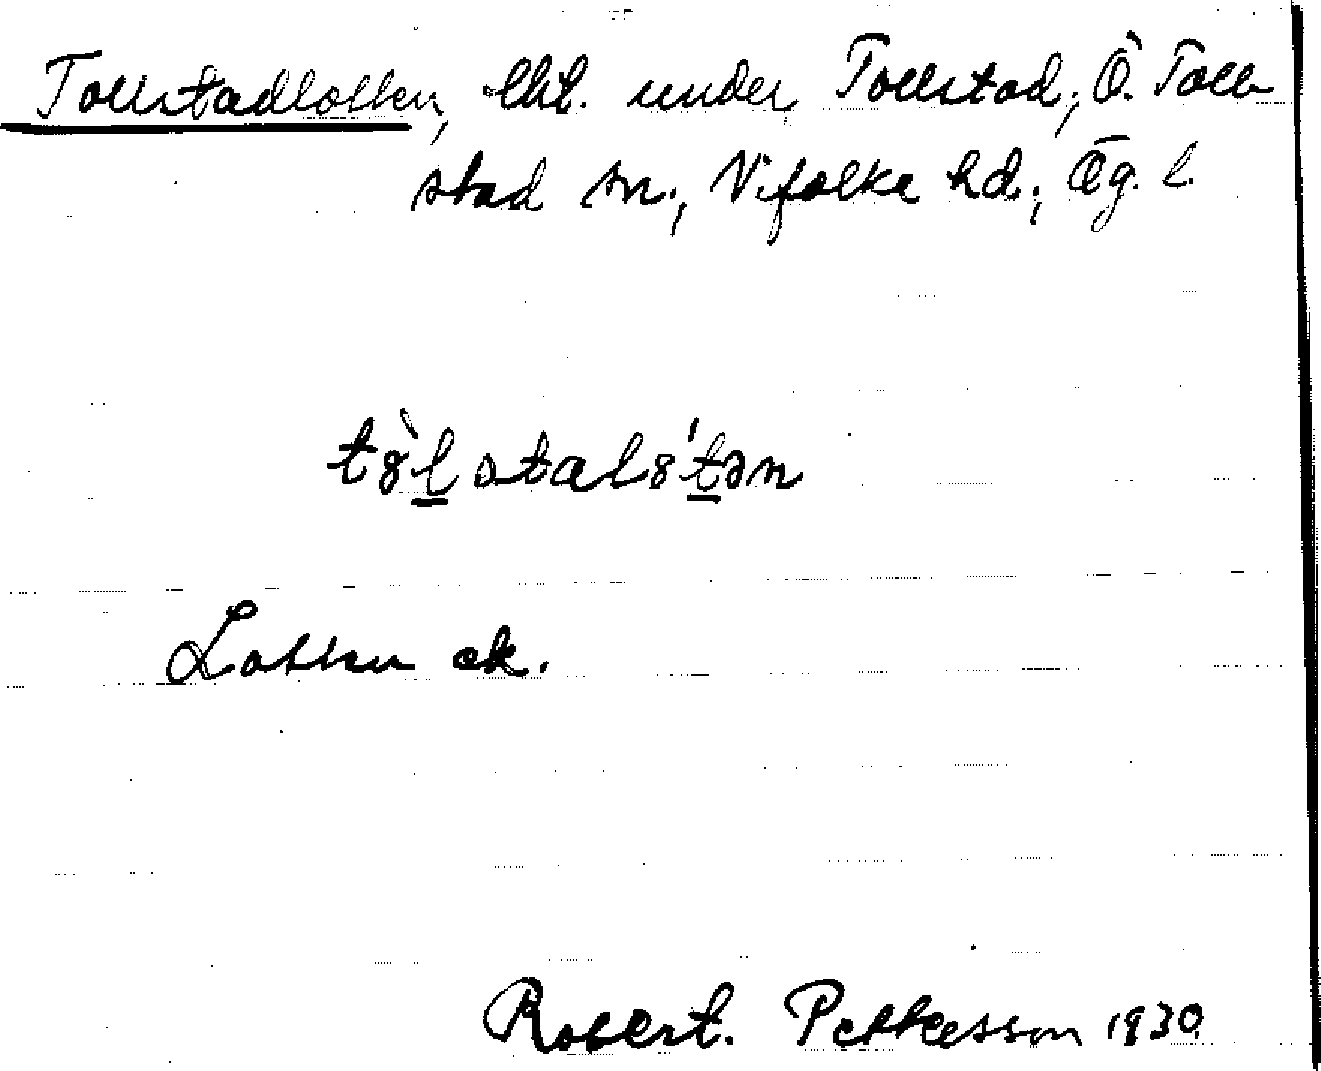 Tollstadlotten, lht. under Tollstad, Ö. Toll-
stad sn., Vifolka hd., Ög. l.
tȣ̀l̲stalȣ́t̲ən
Lotten ek.
Robert. Pettersson 1930